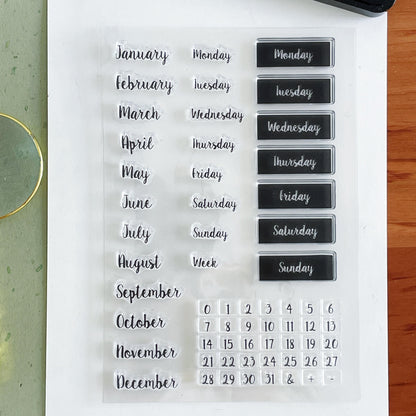 January
February
March
April
May
June
July
August
September
October
November
December
Monday
Tuesday
Wednesday
Thursday
Friday
Saturday
Sunday
Week
Monday
Tuesday
Wednesday
Thursday
Friday
Saturday
Sunday
0 1 2 3 4 5 6
7 8 9 10 11 12 13
14 15 16 17 18 19 20
21 22 23 24 25 26 27
28 29 30 31 & + -